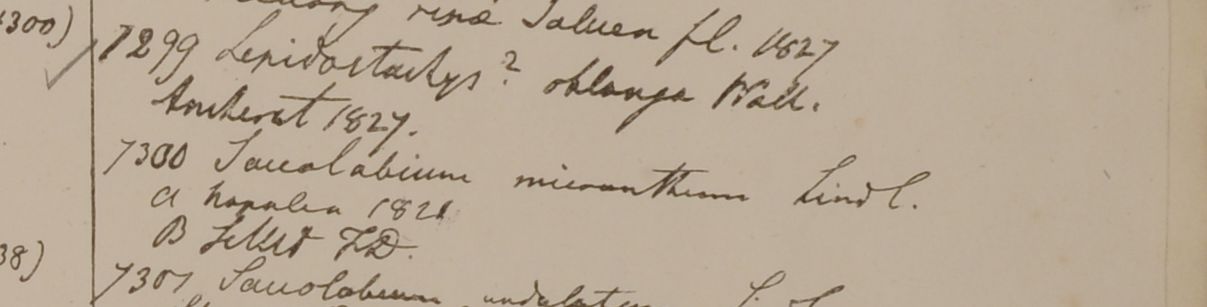 ripæ Saluen fl. 1827
300)
7299 Lepidostachys? oblonga Wall.
Amherst 1827.
7300 Saccolabium micranthum Lindl.
a Napalia 1821
B Sillet FD.
38)
7301 Saccolabium undulatum